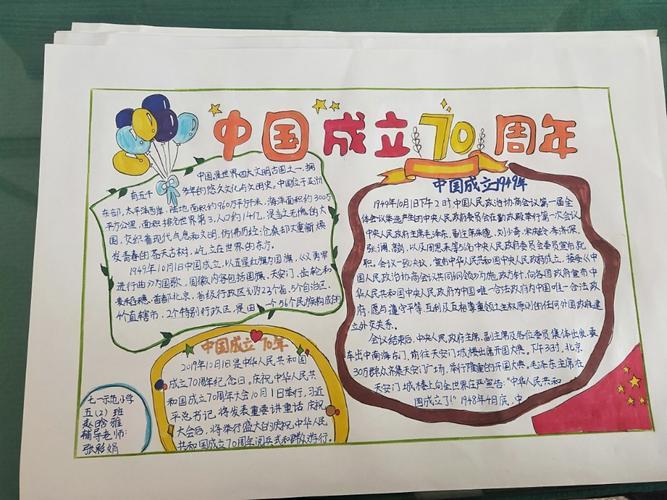 中国成立70周年
中国是世界四大文明古国之一，拥
有五千多年的悠久文化与文明史。中国位于亚洲
东部，太平洋西岸，陆地面积约960万平方千米，海洋面积约300万
平方公里，面积排名世界第3，人口约14亿，是当之无愧的大
国，交织着现代气息和文明，仿佛历经沧桑却又重新焕
发青春的苍天古树，屹立在世界的东方。
1949年10月1日中国成立，以五星红旗为国旗，《义勇军
进行曲》为国歌，国徽内容包括国旗、天安门、齿轮和
麦稻穗，首都北京，省级行政区划为23个省、5个自治区、
4个直辖市、2个特别行政区，是由一个56个民族构成的
中国成立70年
2019年10月1日是中华人民共和国
成立70周年纪念日。庆祝中华人民共
和国成立70周年大会10月1日举行，习近
平总书记将发表重要讲话 庆祝
大会后，将举行盛大的庆祝中华人民
共和国成立70周年阅兵式和群众游行。
七一示范小学
五(2)班
辅导老师：
张彩娟
中国成立1949年
1949年10月1日下午2时，中国人民政治协商会议第一届全
体会议选举产生的中央人民政府委员会在勤政殿举行第一次会议
中央人民政府主席毛泽东，副主席朱德、刘少奇、宋庆龄、李济深、
张澜、高岗，以及周恩来等56名中央人民政府委员会委员宣布就
职。会议一致决议，宣布中华人民共和国中央人民政府成立，接受《中
国人民政治协商会议共同纲领》为施政方针，向各国政府宣布中
华人民共和国中央人民政府为中国唯一合法政府为中国唯一合法政
府，愿与遵守平等、互利及互相尊重领土主权原则的任何外国政府建
立外交关系。
会议结束后，中央人民政府主席、副主席及各位委员集体出发，乘
车出中南海东门，前往天安门城楼出席开国大典。下午3时，北京
30万群众齐集天安门广场，举行隆重的开国大典。毛泽东主席在
天安门城楼上向全世界庄严宣告：“中华人民共和
国成立了！”1948年4月底，中